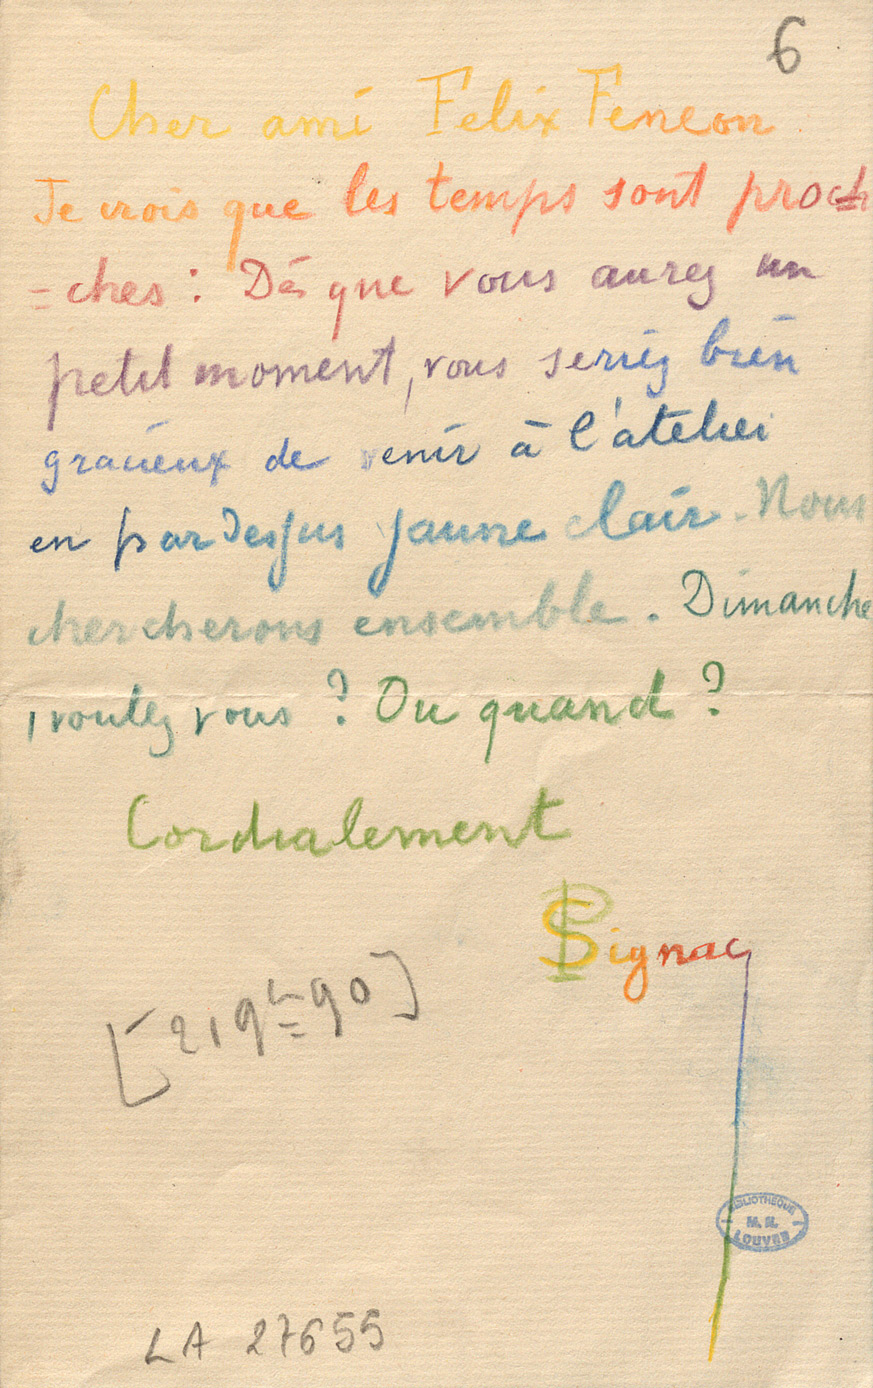 6
Cher ami Felix Feneon
Je crois que les temps sont proch
=ches : Dès que vous aurez un
petit moment, vous seriez bien
gracieux de venir à l'atelier
en pardessus jaune clair. Nous
chercherons ensemble. Dimanche
, voulez vous ? Ou quand ?
Cordialement
PSignac
BIBLIOTHEQUE
M. N.
LOUVRE
LA 27655